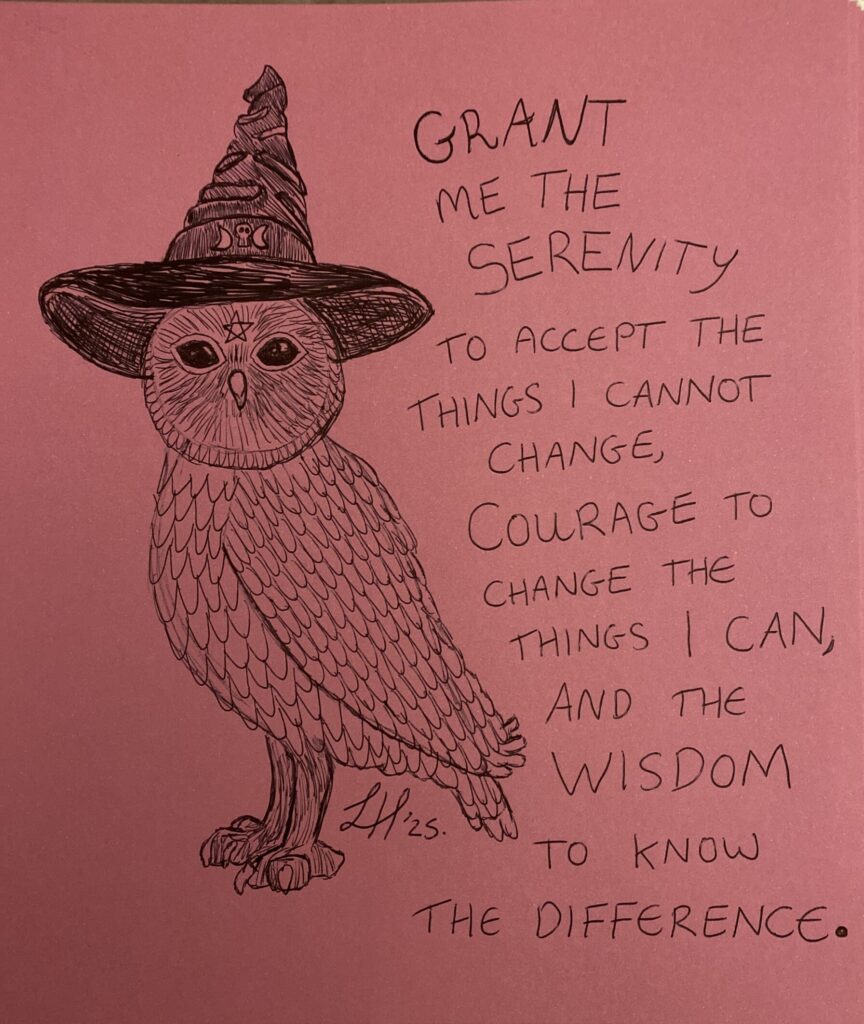 GRANT
ME THE
SERENITY
TO ACCEPT THE
THINGS I CANNOT
CHANGE,
COURAGE TO
CHANGE THE
THINGS I CAN,
AND THE
WISDOM
TO KNOW
THE DIFFERENCE.
LH '25.